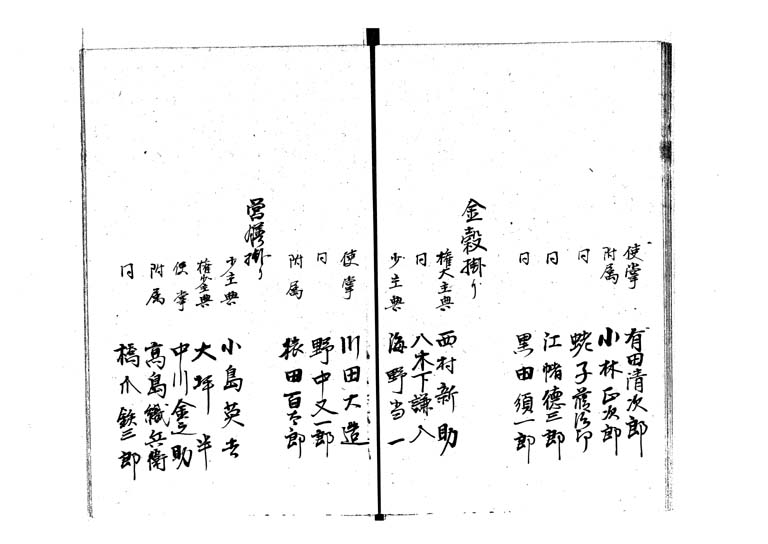 使掌 有田清次郎
附属 小林正次郎
同
同 江幡徳三郎
同 黒田須一郎
金穀掛り
権大主典 西村新助
同 八木下謙八
少主典 海野当一
使掌 川田大造
同 野中又一郎
附属 猿田百太郎
営繕掛り
少主典 小島英吉
権少主典 大坪半
使掌 中川金之助
附属 高島織兵衛
同 橋爪鉄三郎